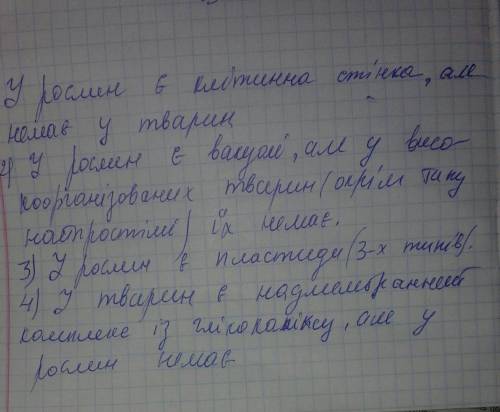 У рослин є клітинна стінка, але
немає у тварин
2) У рослин є вакуолі, але у висо
коорганізованих тварин (окрім типу
найпростіші) їх немає.
3) У рослин є пластиди (3-х типів).
4) У тварин є надмембранний
комплекс із глікокаліксу, але у
рослин немає